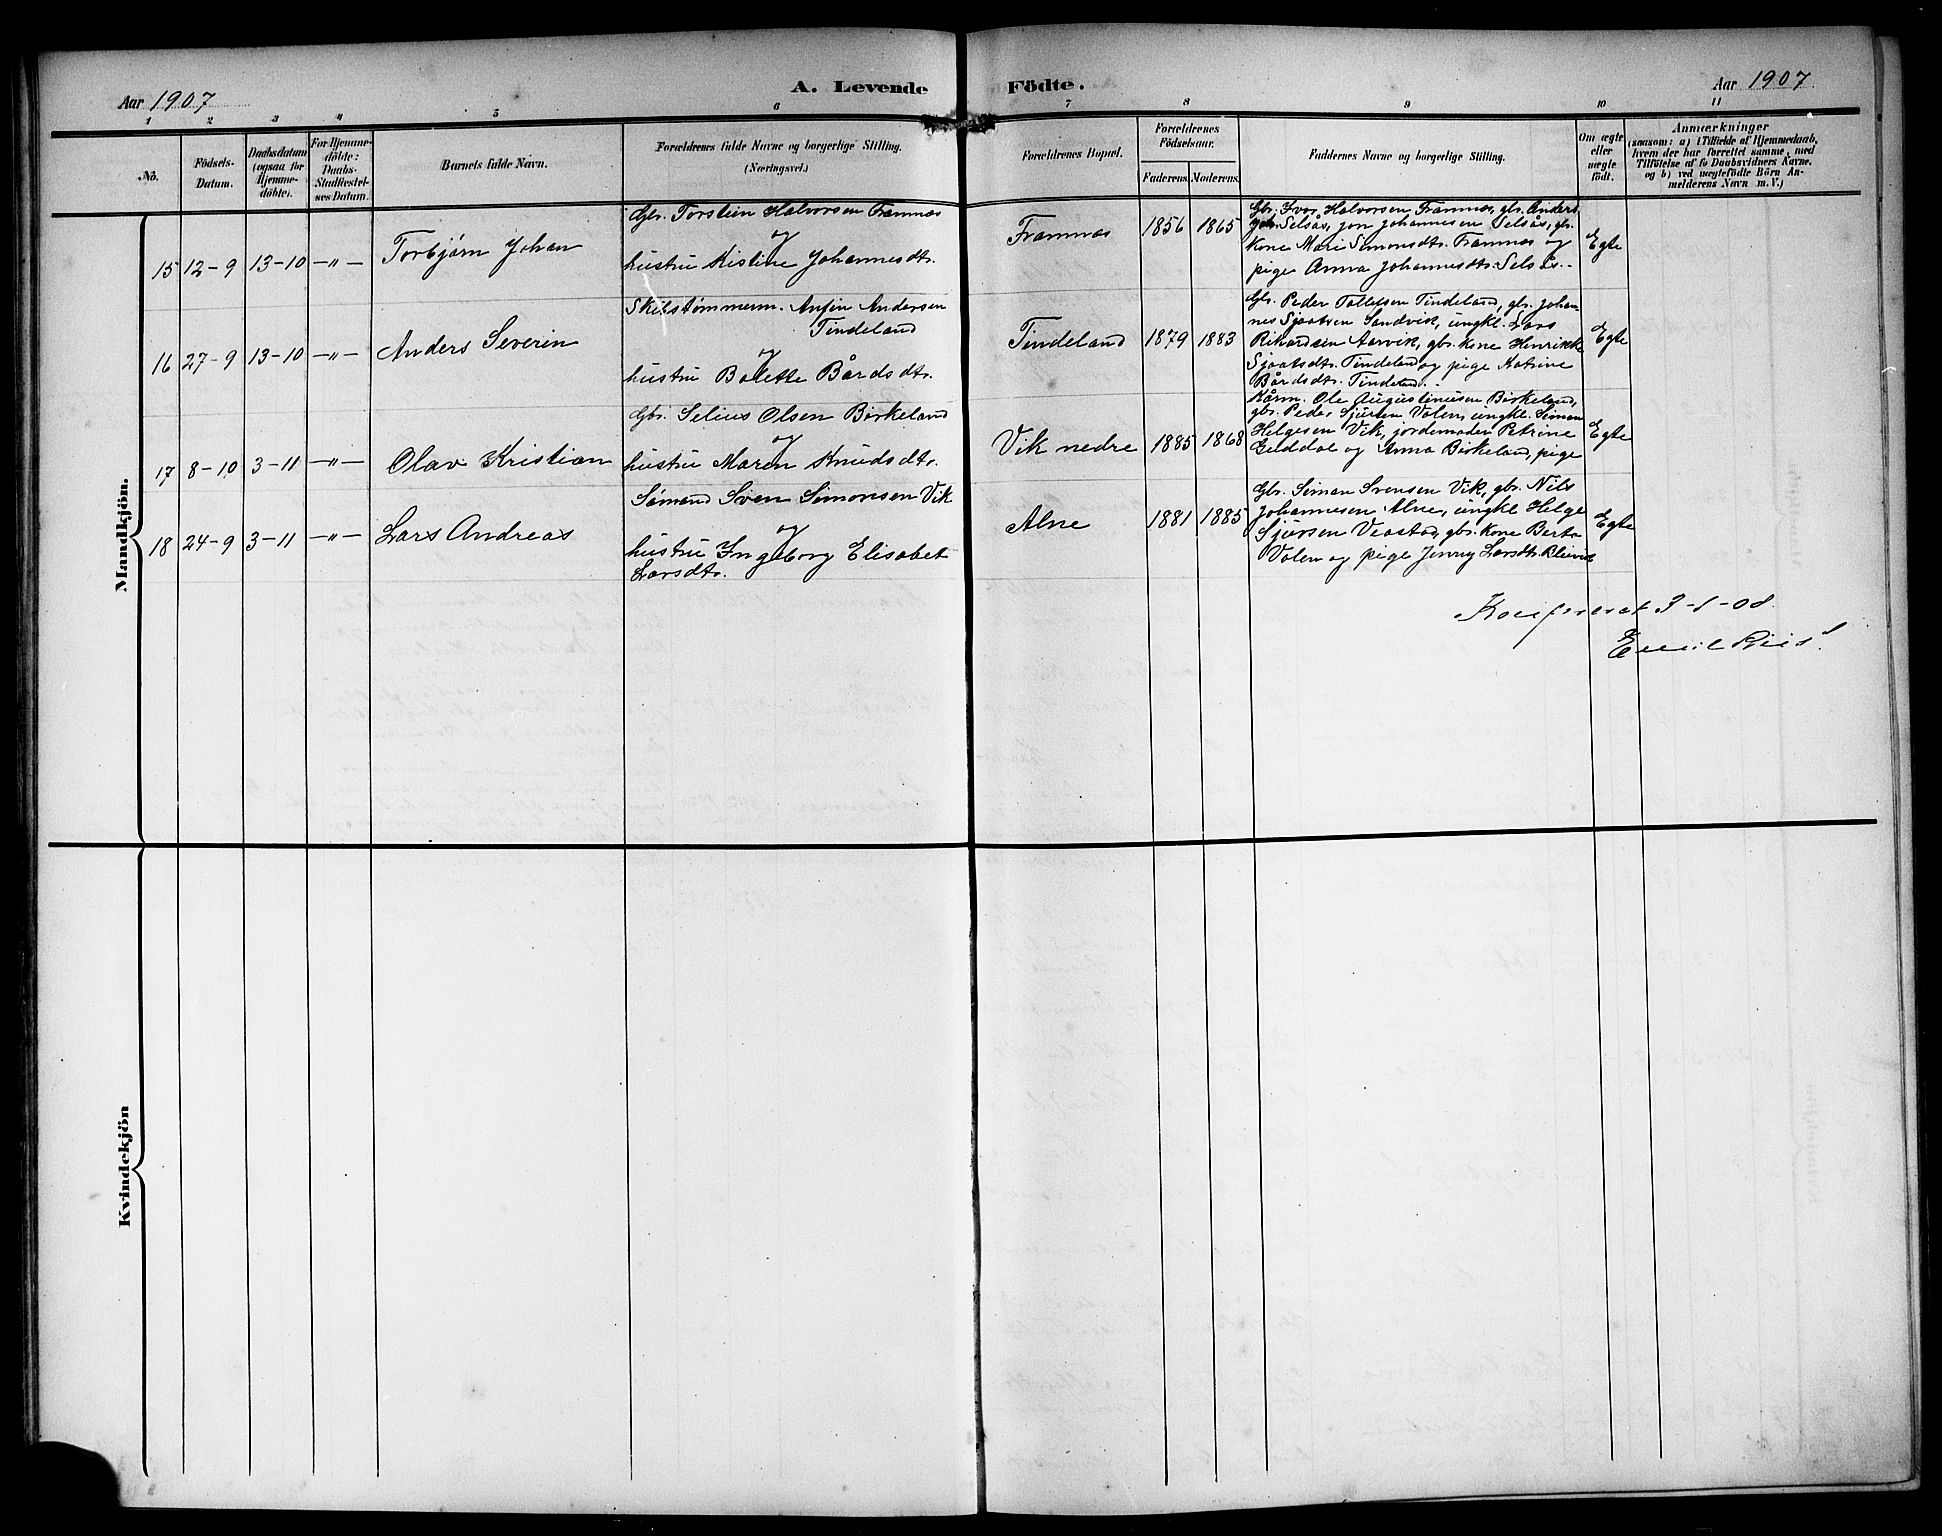 Aar 1907
A. Levende Födte.
Aar 1907.
1 2 3 4 5 6 7 8 9 10 11
No.
Födsels-
Datum.
Daabsdatum
(ogsaa for
Hjemme-
döbte).
For Hjemme-
döbte:
Daabs-
Stadfæstel-
ses Datum.
Barnets fulde Navn.
Forældrenes fulde Navne og borgerlige Stilling.
(Næringsvei.)
Forældrenes Bopæl.
Forældrenes
Födselsaar.
Faderens. Moderens.
Faddernes Navne og borgerlige Stilling.
Om ægte
eller
uægte
födt.
Anmærkninger
(saasom: a) i Tilfælde af Hjemmedaab,
hvem der har forrettet samme, med
Tilföielse af to Daabsvidners Navne.
og b) ved uægtefödte Börn An-
melderens Navn m. V.)
Mandkjön.
15 12-9 13-10 -"- Torbjørn Johan
Gbr. Torstein Halvorsen Framnæs
og
hustru Kistine Johannesdtr.
Framnæs 1856 1865
Gbr. Ivar Halvorsen Framnæs, gbr. Anders
Selsås, Jon Johannesen Selsås, gbr.
kone Mari Simonsdtr. Framnæs og
pige Anna Johannesdtr. Selsås.
Egte
16 27-9 13-10 -"- Anders Severin
Skibstømmerm. Anfin Andersen
Tindeland
og
hustru Bolette Bårdsdtr.
Tindeland 1879 1883
Gbr. Peder Tollefsen Tindeland, gbr. Johan-
nes Sjoatsen Sandvik, ungkl. Lars
Rikardsen Aarvik, gbr. kone Henrikke
Sjoatsdtr. Tindeland og pige Katrine
Bårdsdtr. Tindeland.
Egte
17 8-10 3-11 -"- Olav Kristian
Gbr. Selius Olsen Birkeland
og
hustru Maren Knudsdtr.
Vik nedre 1885 1868
Kårm. Ole Augustinusen Birkeland,
gbr. Peder Sjursen Valen, ungkl. Simon
Helgesen Vik, jordemoder Petrine
og Anna Birkeland, pige
Egte
18 24-9 3-11 -"- Lars Andreas
Sømand Sven Simonsen Vik
og
hustru Ingeborg Elisabet
Larsdtr.
Alne 1881 1885
Gbr. Simon Svensen Vik, gbr. Nils
Johannesen Alne, ungkl. Helge
Sjursen Veastad, gbr. kone Berta
Valen og pige Jenny Larsdtr.
Egte
3-1-08.
Emil Riis.
Kvindekjön